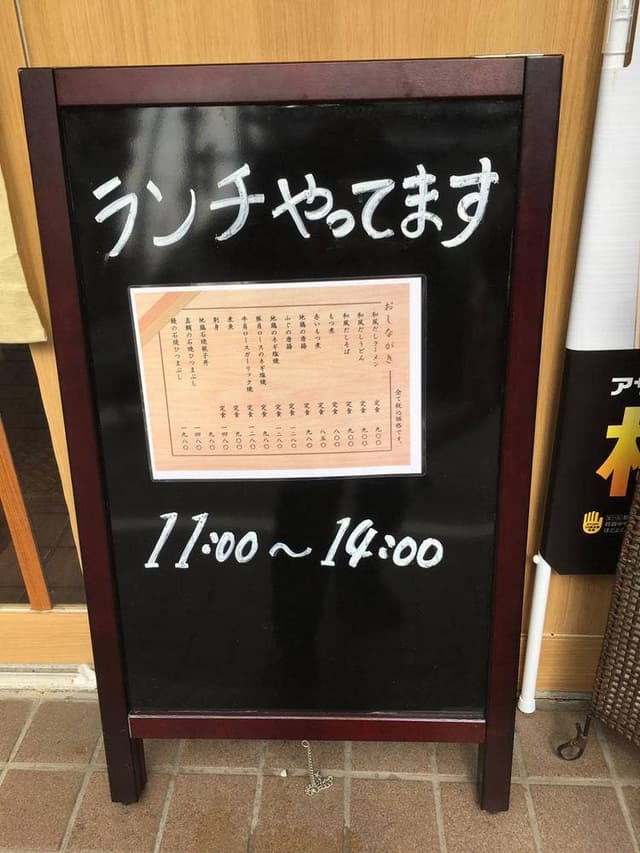 ランチやってます
おしながき
全て税込価格です。
和風だしラーメン 定食 九〇〇
和風だしうどん 定食 九〇〇
和風だしそば 定食 九〇〇
もつ煮 定食 八〇〇
赤いもつ煮 定食 八五〇
地鶏の唐揚 定食 九八〇
ふぐの唐揚 定食 一二八〇
地鶏のネギ塩焼 定食 一二八〇
豚肩ロースのネギ塩焼 定食 九八〇
牛肩ロースガーリック焼 定食 一二八〇
煮魚 定食 九〇〇
刺身 定食 一四八〇
地鶏石焼親子丼 九八〇
真鯛の石焼ひつまぶし 一四八〇
鰻の石焼ひつまぶし 一九八〇
11:00～14:00
アサ